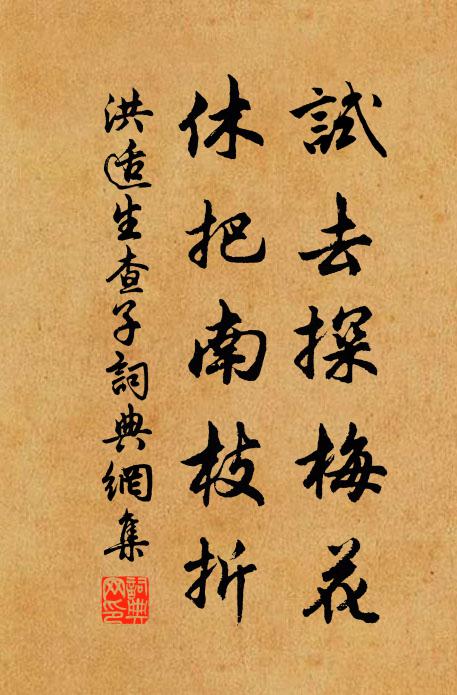 試去探梅花
休把南枝折
洪适生查子詞典網集
詞典網印